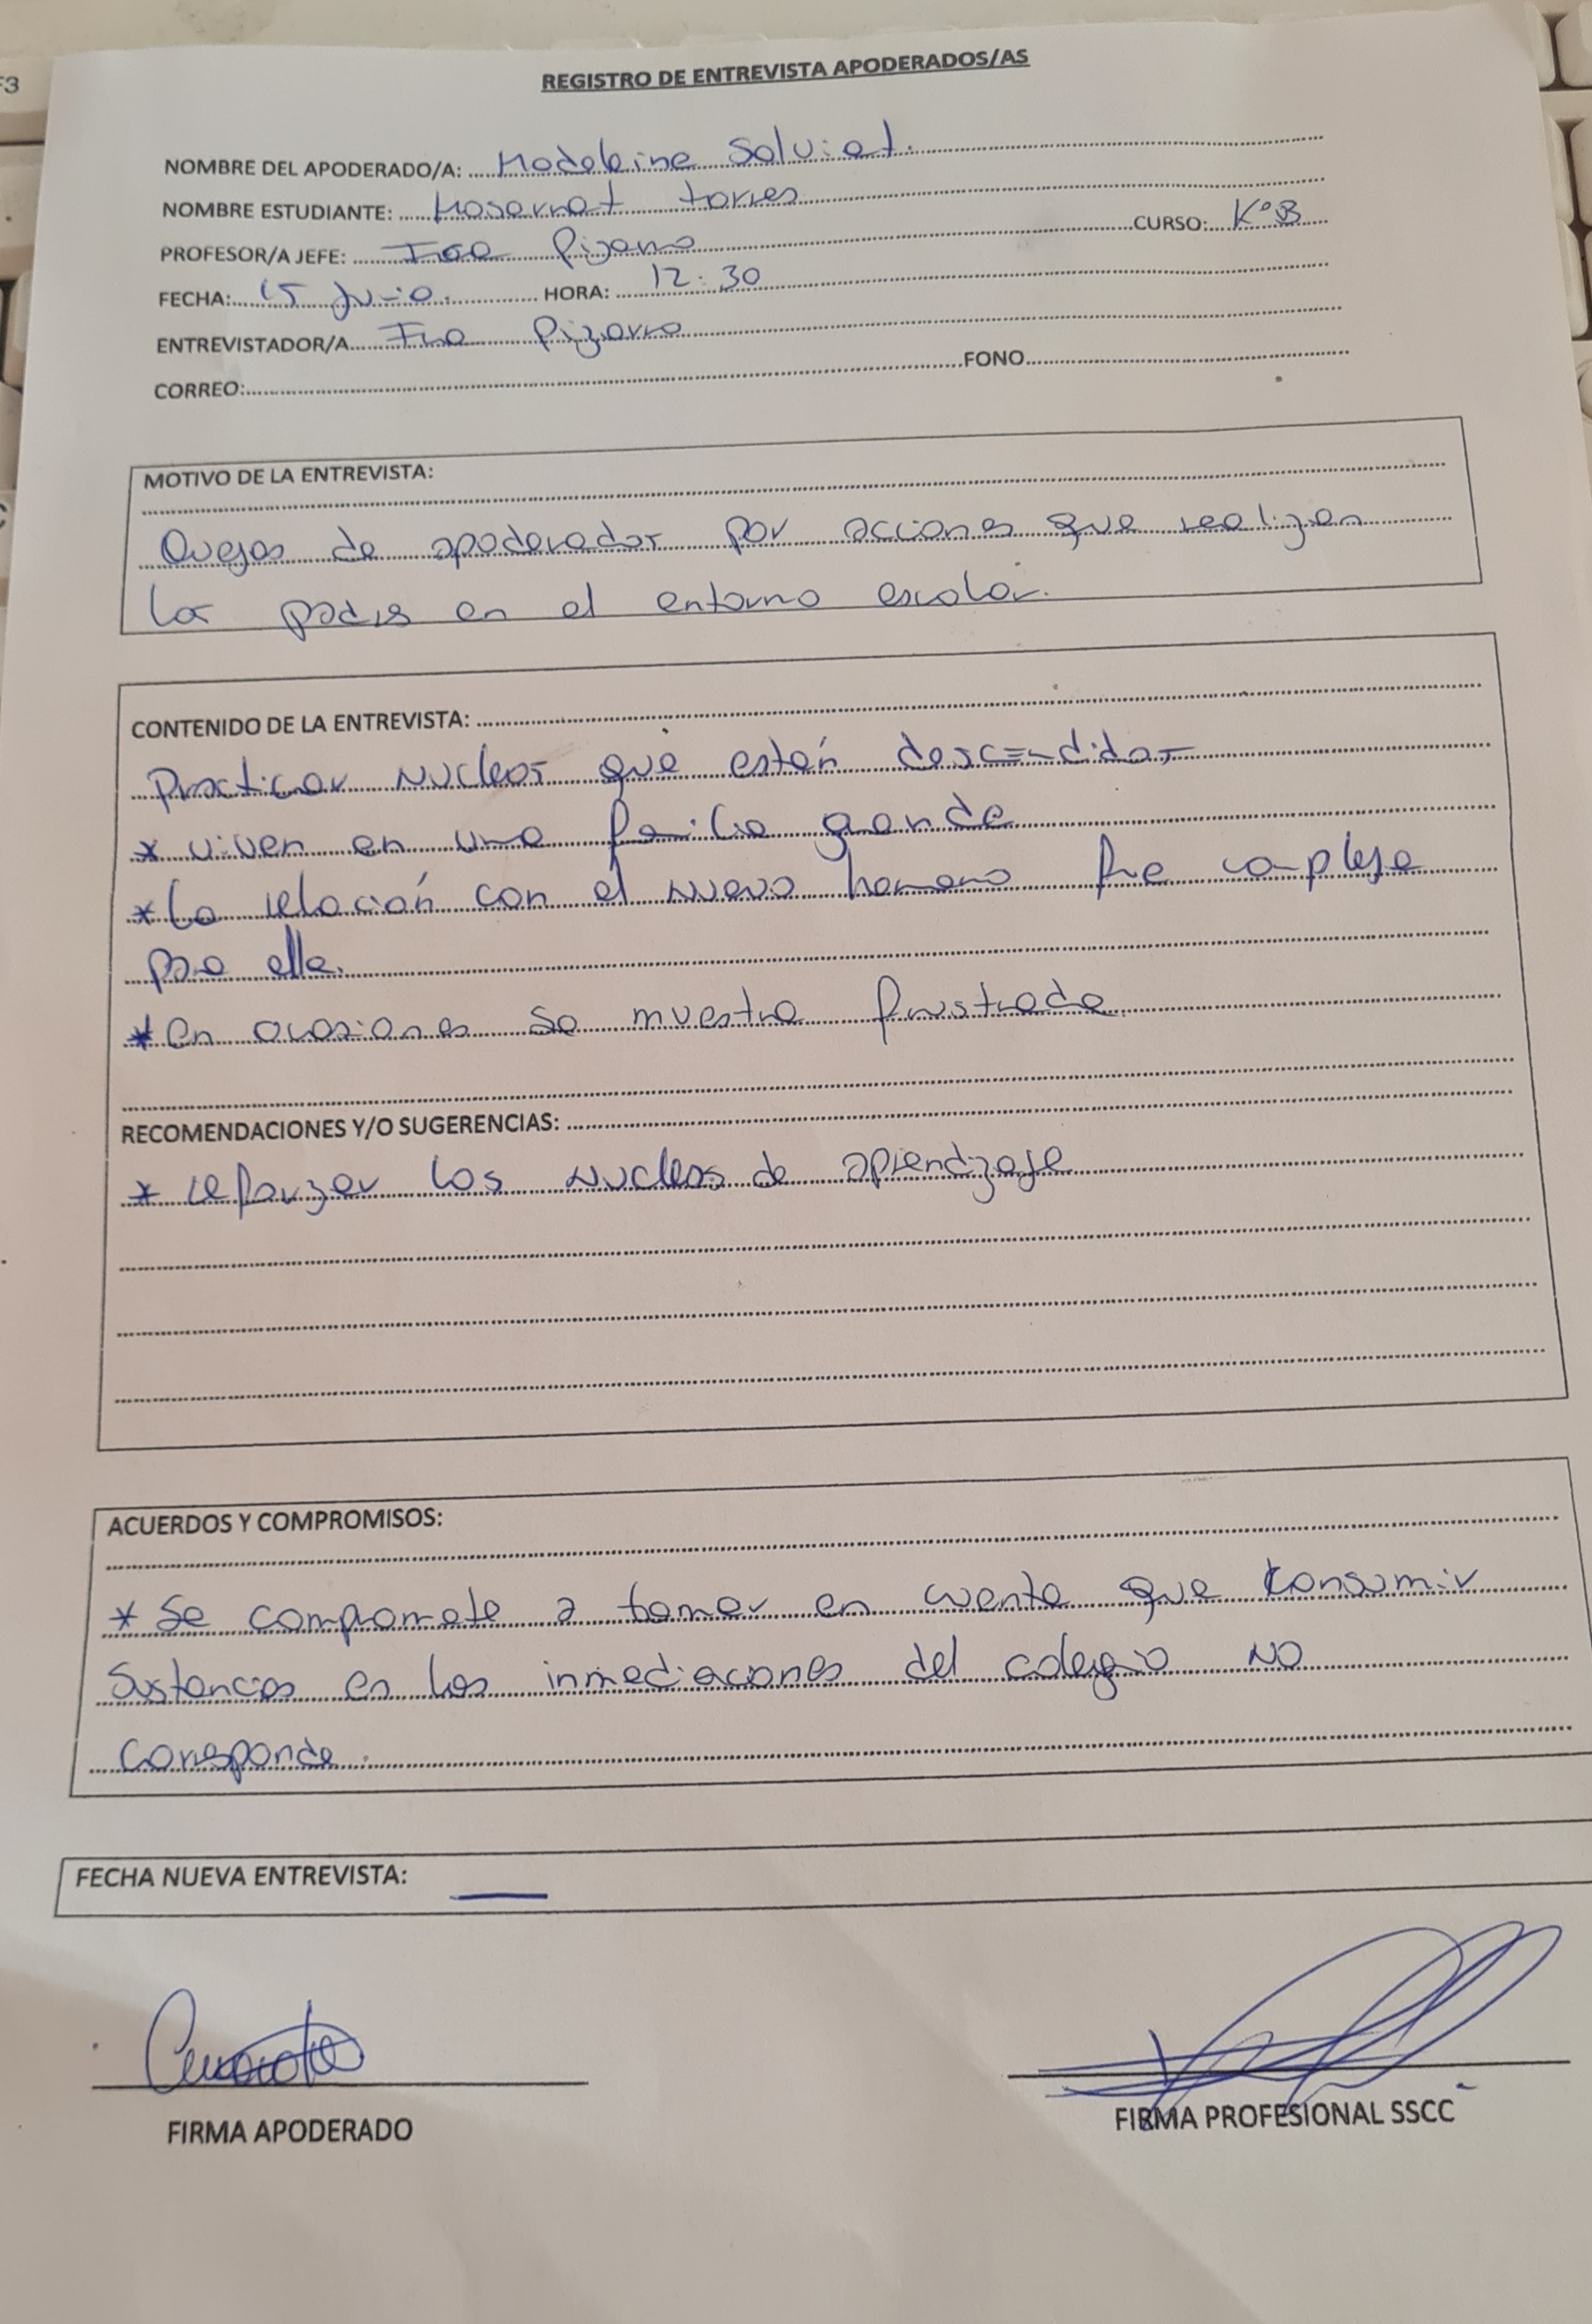 F3
REGISTRO DE ENTREVISTA APODERADOS/AS
NOMBRE DEL APODERADO/A: Madeleine Salviat.
NOMBRE ESTUDIANTE: Monserrat torres
PROFESOR/A JEFE: Pizarro CURSO: K°B
FECHA: 15 Junio. HORA: 12:30
ENTREVISTADOR/A Pizarro
CORREO: FONO
MOTIVO DE LA ENTREVISTA:
Quejas de apoderados por acciones que realizan
los padres en el entorno escolar.
CONTENIDO DE LA ENTREVISTA:
Practicar nucleos que están descendidos
* viven en una familia grande
* La relación con el nuevo hermano fue compleja
para ella.
* en ocasiones se muestra frustrada
RECOMENDACIONES Y/O SUGERENCIAS:
* reforzar los nucleos de aprendizaje
ACUERDOS Y COMPROMISOS:
* Se compromete a tomar en cuenta que consumir
Sustancias en las inmediaciones del colegio NO
Corresponde.
FECHA NUEVA ENTREVISTA: —
FIRMA APODERADO
FIRMA PROFESIONAL SSCC